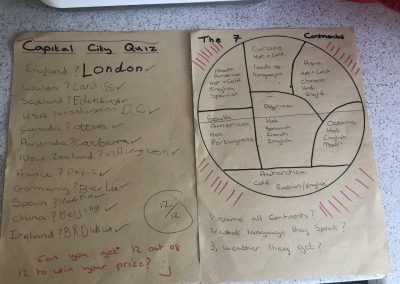 Capital City Quiz
England? London
Wales? Cardiff
Scotland? Edinburgh
USA? Washington D.C
Canada? Ottawa
Australia? Canberra
New Zealand? Wellington
France? Paris
Germany? Berlin
Spain? Madrid
China? Beijing
Ireland? Dublin
12/12
Can you get 12 out of
12 to win your prize?
The 7 Continents
North
American
Hot + Cold
English
Spanish
Europe
Hot + Cold
lots of
languages
Asia
Hot + Cold
Chinese
Hindi
English
South
American
Hot
Portuguese
African
Hot
French
English
Oceania
Hot
English
Maori
Antarctica
Cold Russian/English
1, name all Continents?
2, what language they speak?
3, weather they get?